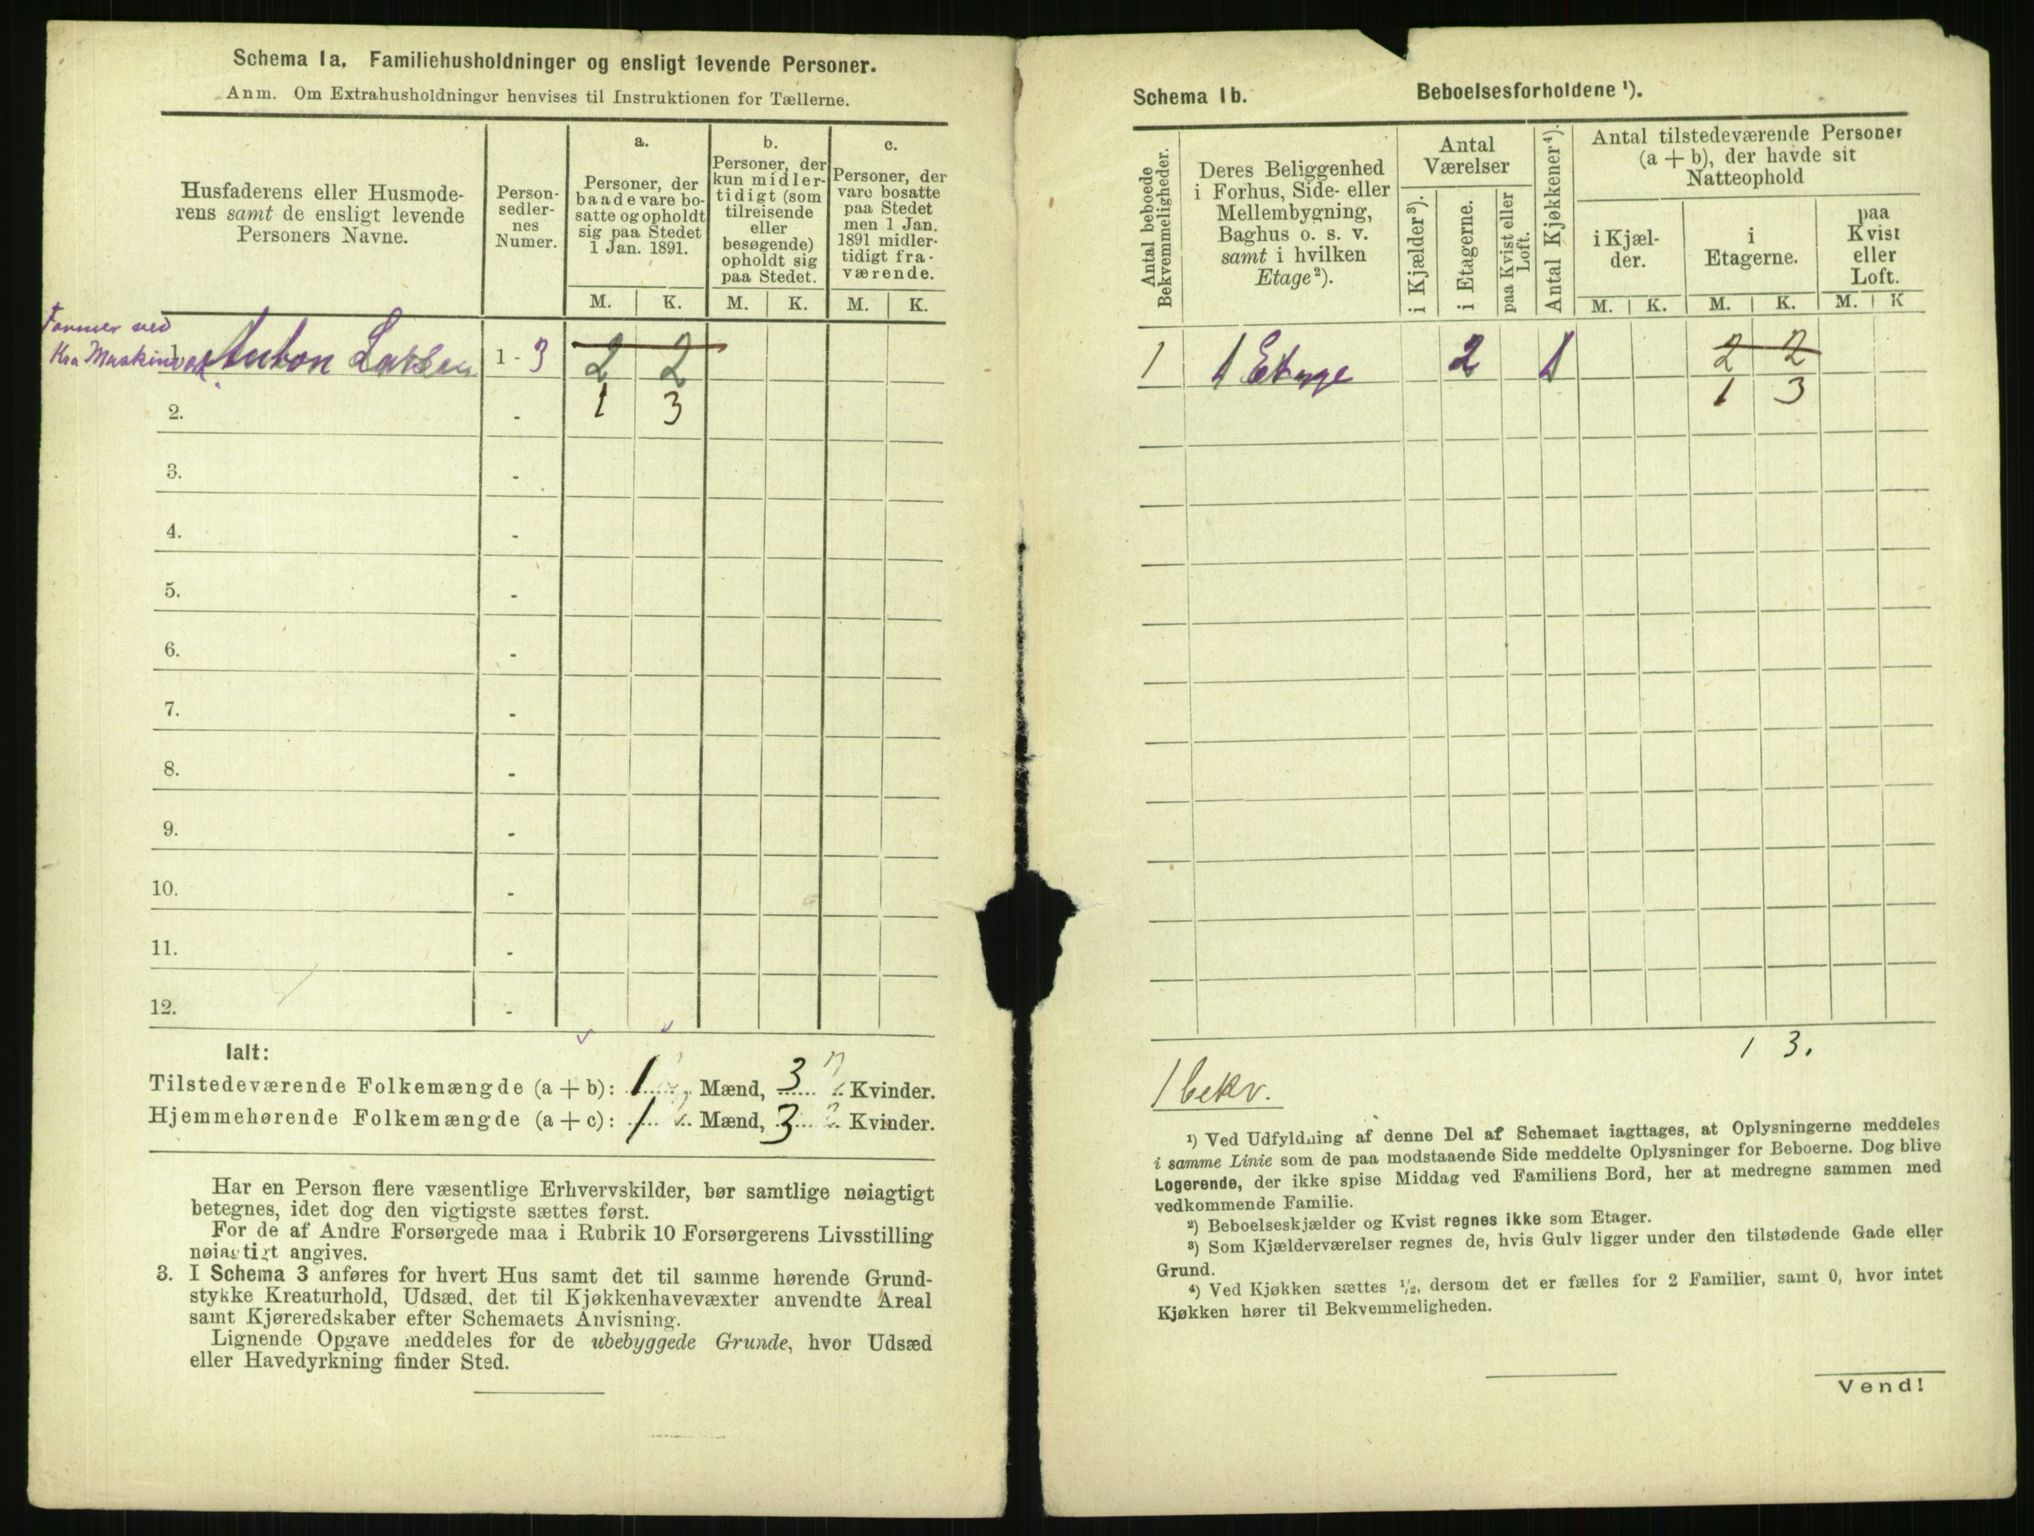 Schema 1a. Familiehusholdninger og ensligt levende Personer.
Anm. Om Extrahusholdninger henvises til Instruktionen for Tællerne.
Husfaderens eller Husmode-
rens samt de ensligt levende
Personers Navne.
Person-
sedler-
nes
Numer.
a.
Personer, der
baade vare bo-
satte og opholdt
sig paa Stedet
1 Jan. 1891.
b.
Personer, der
kun midler-
tidigt (som
tilreisende
eller
besøgende)
opholdt sig
paa Stedet.
c.
Personer, der
vare bosatte
paa Stedet
men 1 Jan.
1891 midler-
tidigt fra-
værende.
M. K. M. K. M. K.
Former ved
Kra Maskinverk.
1. Anton Larsen 1 - 3 2 2
2. - 1 3
3. -
4. -
5. -
6. -
7. -
8. -
9. -
10. -
11. -
12. -
Ialt:
Tilstedeværende Folkemængde (a + b): 1 Mænd, 3 Kvinder.
Hjemmehørende Folkemængde (a + c): 1 Mænd, 3 Kvinder.
Har en Person flere væsentlige Erhvervskilder, bør samtlige nøiagtigt
betegnes, idet dog den vigtigste sættes først.
For de af Andre Forsørgede maa i Rubrik 10 Forsørgerens Livsstilling
nøiagtigt angives.
3. I Schema 3 anføres for hvert Hus samt det til samme hørende Grund-
stykke Kreaturhold, Udsæd, det til Kjøkkenhavevæxter anvendte Areal
samt Kjøreredskaber efter Schemaets Anvisning.
Lignende Opgave meddeles for de ubebyggede Grunde, hvor Udsæd
eller Havedyrkning finder Sted.
Schema 1b. Beboelsesforholdene ¹).
Antal beboede
Bekvemmeligheder.
Deres Beliggenhed
i Forhus, Side- eller
Mellembygning,
Baghus o. s. v.
samt i hvilken
Etage²).
Antal
Værelser
i Kjælder³).
i Etagerne.
paa Kvist eller
Loft.
Antal Kjøkkener⁴).
Antal tilstedeværende Personer
(a + b), der havde sit
Natteophold
i Kjæl-
der.
i
Etagerne.
paa
Kvist
eller
Loft.
M. K. M. K. M. K
1 1 Etage 2 1 2 2
1 3
1 3.
1 bekv.
¹) Ved Udfyldning af denne Del af Schemaet iagttages, at Oplysningerne meddeles
i samme Linie som de paa modstaaende Side meddelte Oplysninger for Beboerne. Dog blive
Logerende, der ikke spise Middag ved Familiens Bord, her at medregne sammen med
vedkommende Familie.
²) Beboelseskjælder og Kvist regnes ikke som Etager.
³) Som Kjælderværelser regnes de, hvis Gulv ligger under den tilstødende Gade eller
Grund.
⁴) Ved Kjøkken sættes ½, dersom det er fælles for 2 Familier, samt 0, hvor intet
Kjøkken hører til Bekvemmeligheden.
Vend!